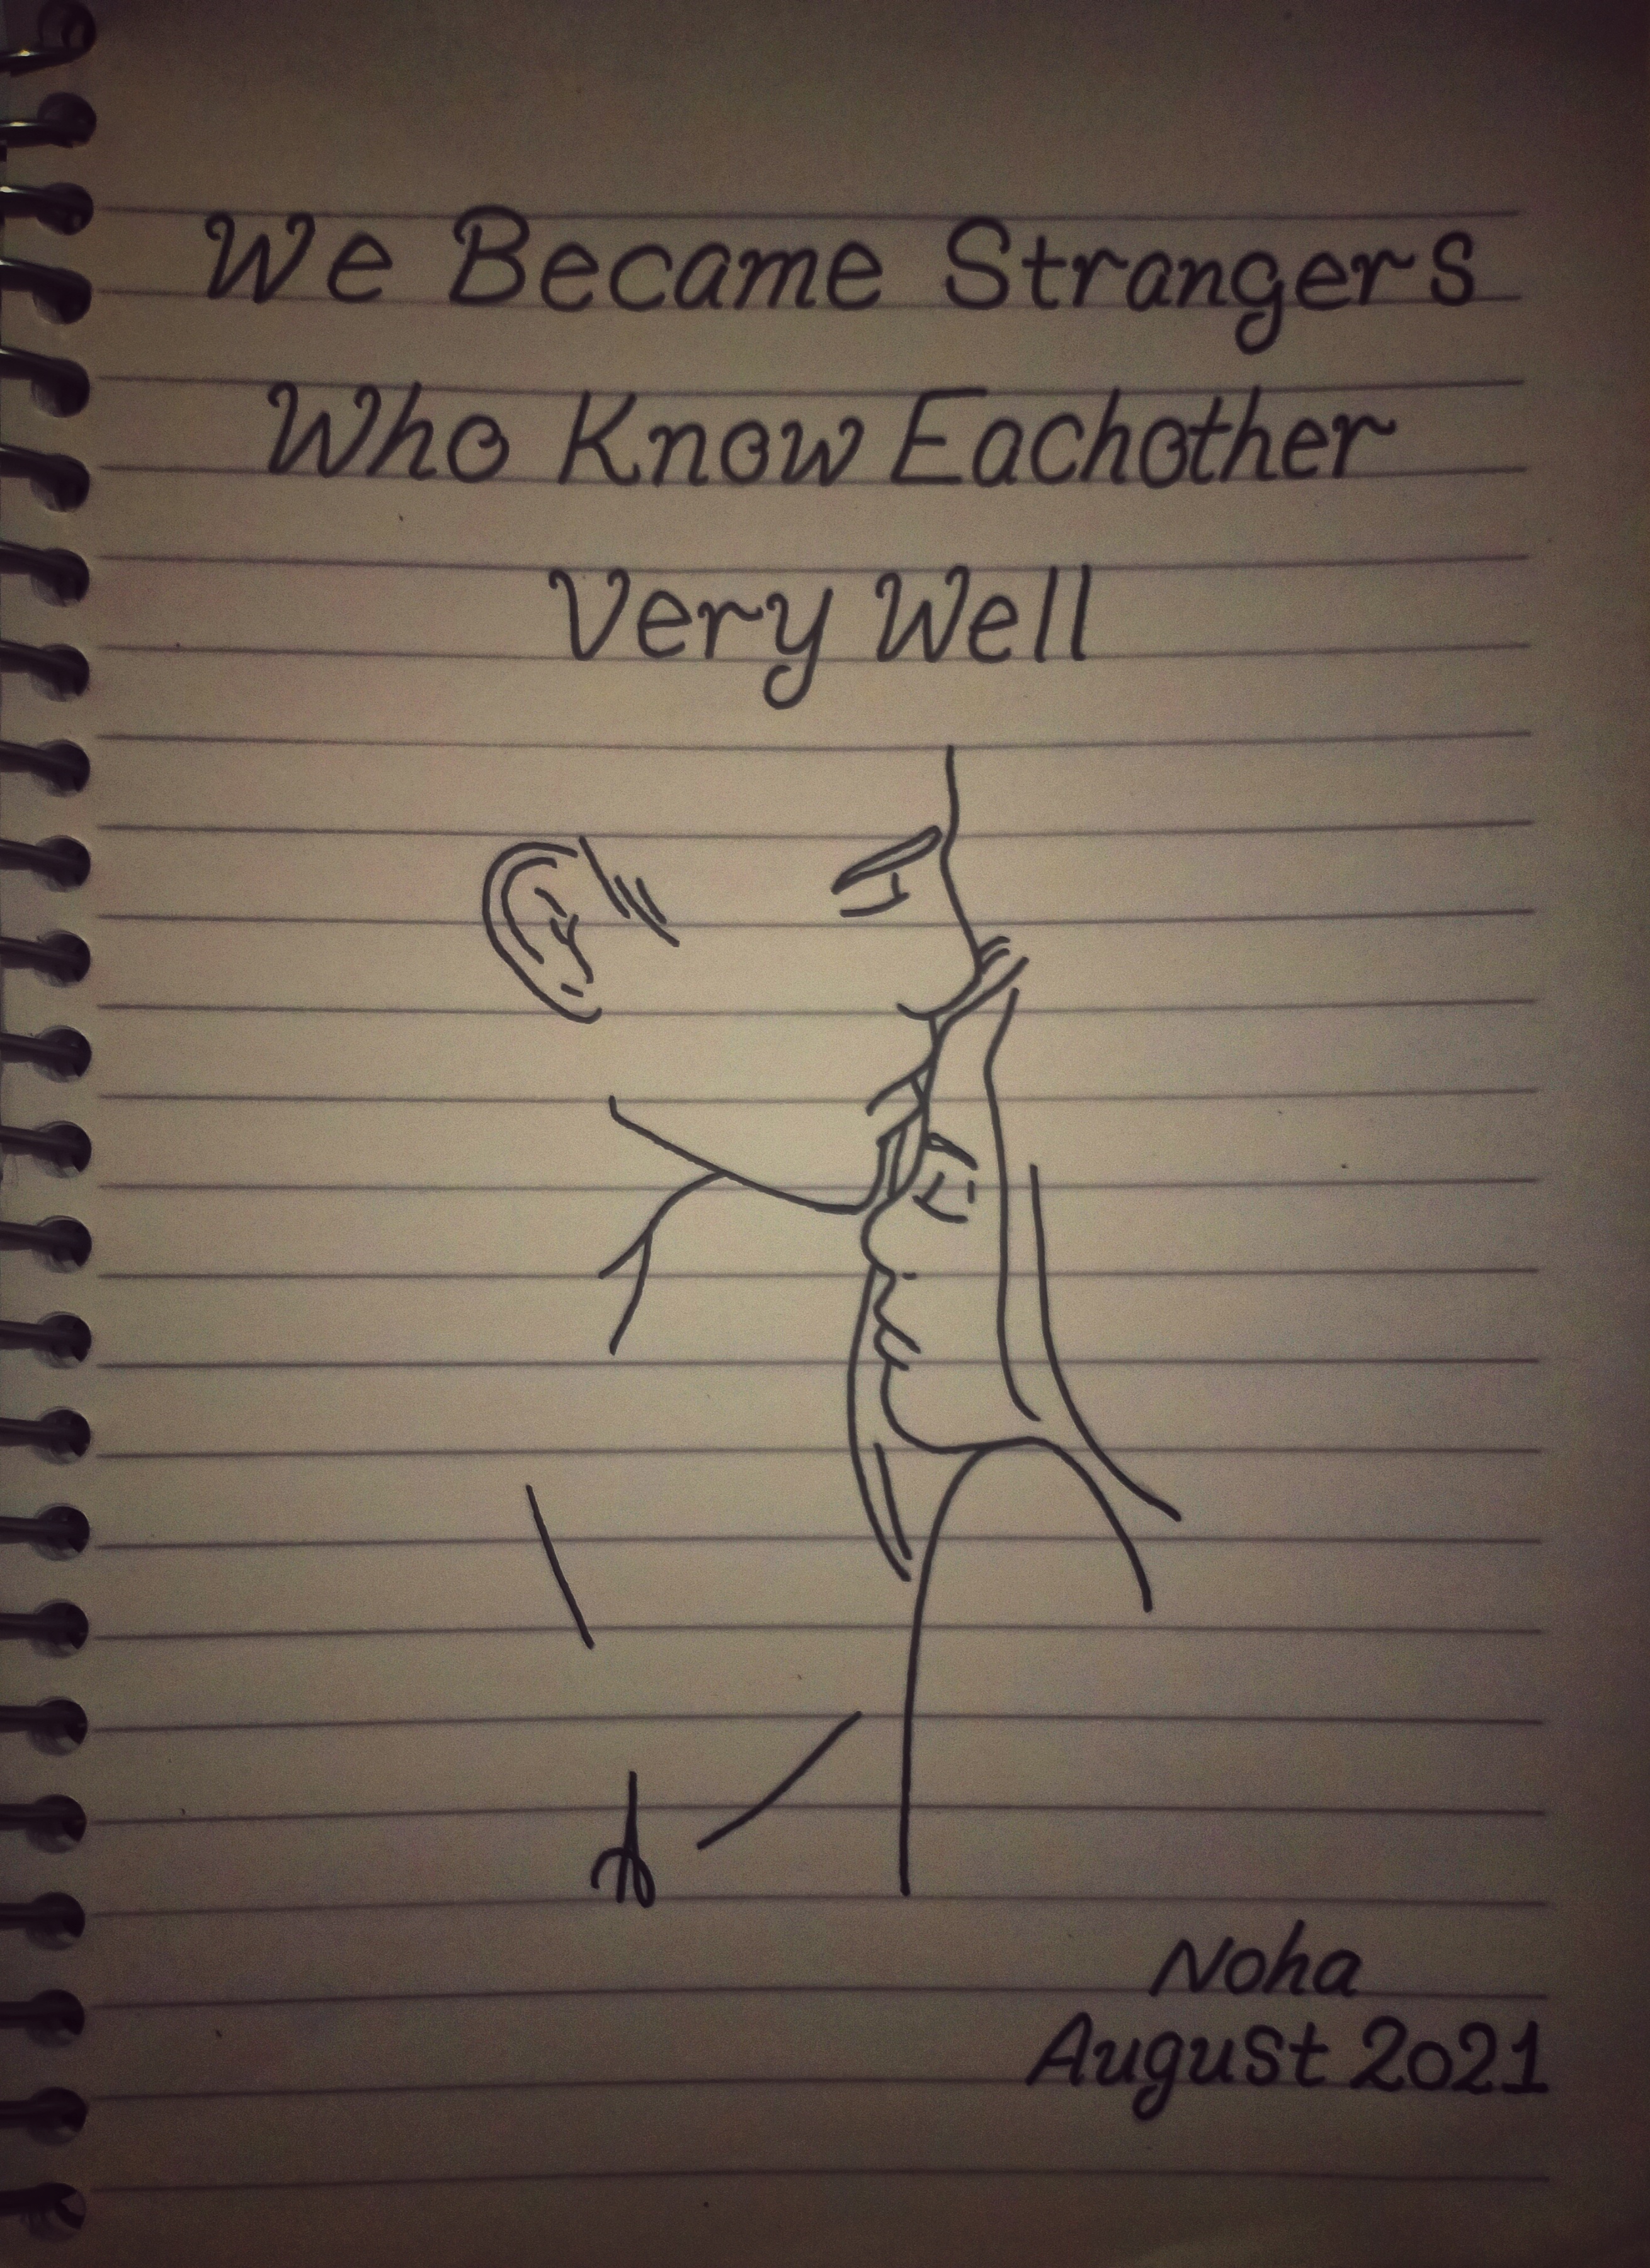 We Became Strangers
Who Know Eachother
Very Well
Noha
August 2021